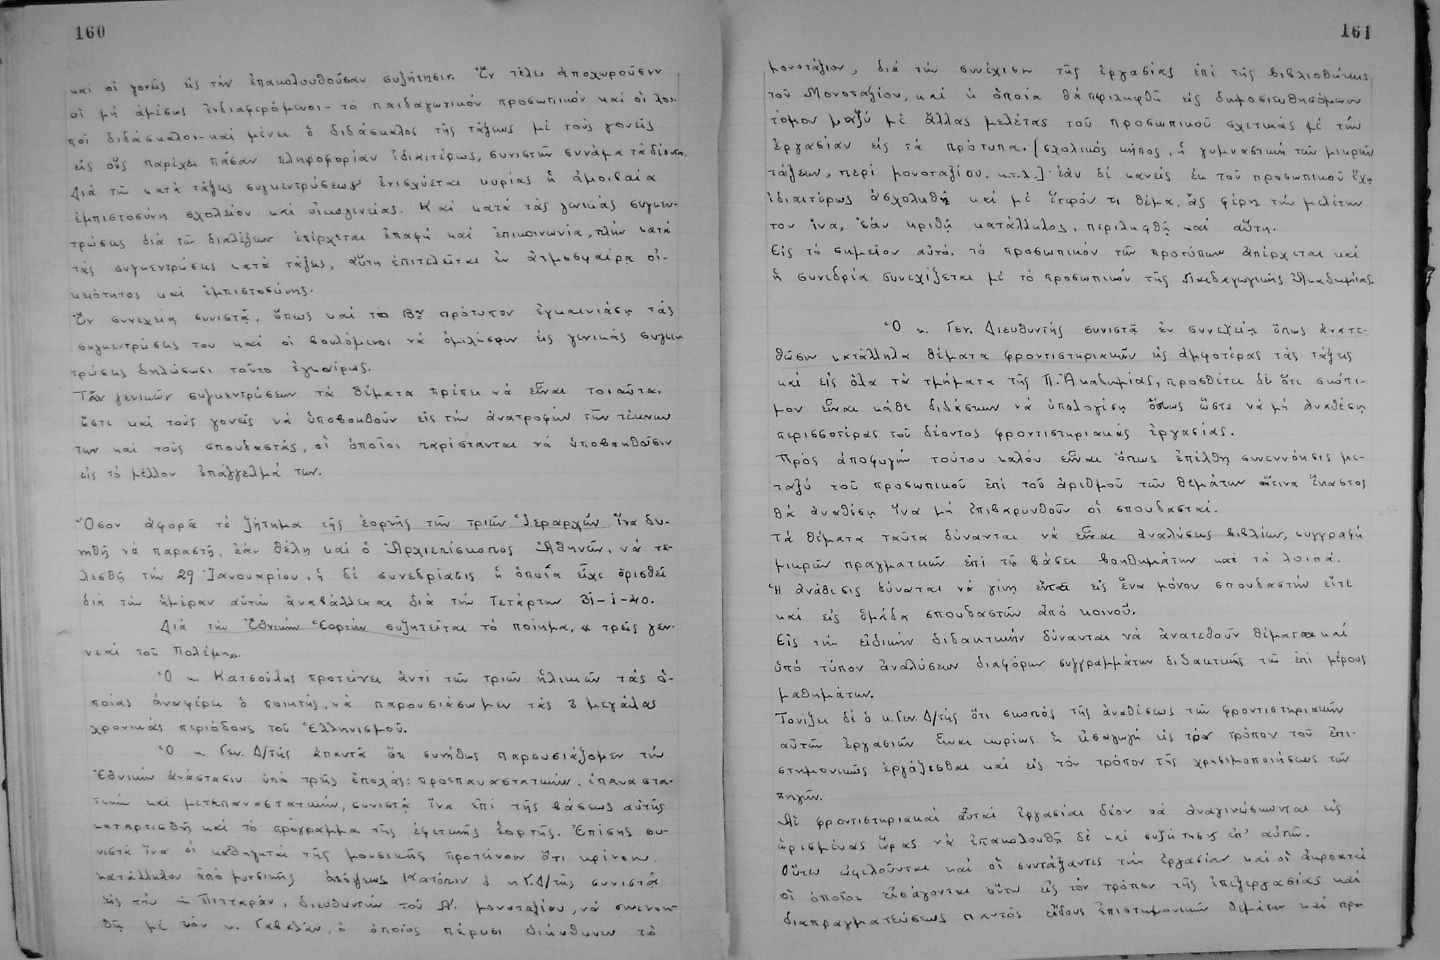 160
καὶ οἱ γονεῖς εἰς τὴν ἐπακολουθοῦσαν συζήτησιν. Ἐν τέλει ἀποχωροῦσιν
οἱ μὴ ἀμέσως ἐνδιαφερόμενοι - τὸ παιδαγωγικὸν προσωπικὸν καὶ οἱ λοι-
ποὶ διδάσκαλοι - καὶ μένει ὁ διδάσκαλος τῆς τάξεως μὲ τοὺς γονεῖς
εἰς οὓς παρέχει πᾶσαν πληροφορίαν ἰδιαιτέρως, συνιστῶν συνάμα τὰ δέοντα.
Διὰ τῶν κατὰ τάξεις συγκεντρώσεων ἐνισχύεται κυρίως ἡ ἀμοιβαία
ἐμπιστοσύνη σχολείου καὶ οἰκογενείας. Καὶ κατὰ τὰς γενικὰς συγκεν-
τρώσεις διὰ τῶν διαλέξεων ἐπέρχεται ἐπαφὴ καὶ ἐπικοινωνία, πλὴν κατὰ
τὰς συγκεντρώσεις κατὰ τάξεις, αὕτη ἐπιτελεῖται ἐν ἀτμοσφαίρᾳ οἰ-
κειότητος καὶ ἐμπιστοσύνης.
Ἐν συνεχείᾳ συνιστᾷ, ὅπως καὶ το Βον πρότυπον ἐγκαινιάσῃ τὰς
συγκεντρώσεις του καὶ οἱ βουλόμενοι νὰ ὁμιλήσουν εἰς γενικὰς συγκεν
τρώσεις δηλώσωσι τοῦτο ἐγκαίρως.
Τῶν γενικῶν συγκεντρώσεων τὰ θέματα πρέπει νὰ εἶναι τοιαῦτα,
ὥστε καὶ τοὺς γονεῖς νὰ ὑποβοηθοῦν εἰς τὴν ἀνατροφὴν τῶν τέκνων
των καὶ τοὺς σπουδαστάς, οἱ ὁποῖοι παρίστανται νὰ ὑποβοηθοῦσιν
εἰς τὸ μέλλον ἐπάγγελμά των.
Ὅσον ἀφορᾷ τὸ ζήτημα τῆς ἑορτῆς τῶν τριῶν Ἱεραρχῶν, ἵνα δυ-
νηθῇ νὰ παραστῇ, ἐὰν θέλῃ καὶ ὁ Ἀρχιεπίσκοπος Ἀθηνῶν, νὰ τε-
λεσθῇ τὴν 29 Ἰανουαρίου, ἡ δὲ συνεδρίασις ἡ ὁποία εἶχε ὁρισθεῖ
διὰ τὴν ἡμέραν αὐτὴν ἀναβάλλεται διὰ τὴν Τετάρτην 31-1-40.
Διὰ τὴν Ἐθνικὴν Ἑορτὴν συζητεῖται τὸ ποίημα, « τρεῖς γεν-
νεαὶ τοῦ Πολέμη».
Ὁ κ. Κατσούλης προτείνει ἀντὶ τῶν τριῶν ἡλικιῶν τὰς ὁ-
ποίας ἀναφέρει ὁ ποιητής, νὰ παρουσιάσωμεν τὰς 3 μεγάλας
χρονικὰς περιόδους τοῦ Ἑλληνισμοῦ.
Ὁ κ. Γεν. Δ/τής ἀπαντᾷ ὅτι συνήθως παρουσιάζομεν τὴν
Ἐθνικὴν ἀνάστασιν ὑπὸ τρεῖς ἐποχάς: προεπαναστατικήν, ἐπαναστα-
τικὴν καὶ μετεπαναστατικήν, συνιστᾷ ἵνα ἐπὶ τῆς βάσεως αὐτῆς
καταρτισθῇ καὶ τὸ πρόγραμμα τῆς ἐφετινῆς ἑορτῆς. Ἐπίσης συ-
νιστᾷ ἵνα οἱ καθηγηταὶ τῆς μουσικῆς προτείνουν ὅτι κρίνουν
κατάλληλον ἀπὸ μουσικῆς ἀπόψεως. Κατόπιν ὁ κ. Γ.Δ/τής συνιστᾷ
εἰς τὸν κ. Πιτταρᾶν, διευθυντὴν τοῦ Α'. μονοταξίου, νὰ συνενοη-
θῇ μὲ τὸν κ. Γαβελᾶν, ὁ ὁποῖος πέρυσι διηύθυνεν τὸ
161
μονοτάξιον, διὰ τὴν συνέχισιν τῆς ἐργασίας ἐπὶ τῆς βιβλιοθήκης
τοῦ Μονοταξίου, καὶ ἡ ὁποία θὰ περιληφθῇ εἰς δημοσιευθησόμενον
τόμον μαζὺ μὲ ἄλλας μελέτας τοῦ προσωπικοῦ σχετικὰς μὲ τὴν
ἐργασίαν εἰς τὰ πρότυπα. [σχολικὸς κῆπος, ἡ γυμναστικὴ τῶν μικρῶν
τάξεων, περὶ μονοταξίου. κ.τ.λ.]· ἐὰν δὲ κανεὶς ἐκ τοῦ προσωπικοῦ ἔχῃ
ἰδιαιτέρως ἀσχοληθῆ καὶ μὲ ἕτερόν τι θέμα, ἂς φέρῃ τὴν μελέτην
του ἵνα, ἐὰν κριθῇ κατάλληλος, περιληφθῇ καὶ αὕτη.
Εἰς τὸ σημεῖον αὐτό, τὸ προσωπικὸν τῶν προτύπων ἀπέρχεται καὶ
ἡ συνεδρία συνεχίζεται μὲ τὸ προσωπικὸν τῆς Παιδαγωγικῆς Ἀκαδημίας.
Ὁ κ. Γεν. Διευθυντὴς συνιστᾷ ἐν συνεχείᾳ ὅπως ἀνατε-
θῶσιν κατάλληλα θέματα φροντιστηριακῶν εἰς ἀμφοτέρας τὰς τάξεις
καὶ εἰς ὅλα τὰ τμήματα τῆς Π. Ἀκαδημίας, προσθέτει δὲ ὅτι σκόπι-
μον εἶναι κάθε διδάσκων νὰ ὑπολογίσῃ ὅπως ὥστε νὰ μὴ ἀναθέσῃ
περισσοτέρας τοῦ δέοντος φροντιστηριακὰς ἐργασίας.
Πρὸς ἀποφυγὴν τούτου καλὸν εἶναι ὅπως ἐπέλθῃ συνεννόησις με-
ταξὺ τοῦ προσωπικοῦ ἐπὶ τοῦ ἀριθμοῦ τῶν θεμάτων ἅτινα ἕκαστος
θὰ ἀναθέσῃ ἵνα μὴ ἐπιβαρυνθοῦν οἱ σπουδασταί.
Τὰ θέματα ταῦτα δύνανται νὰ εἶναι ἀναλύσεις βιβλίων, συγγραφὴ
μικρῶν πραγματειῶν ἐπὶ τῇ βάσει βοηθημάτων καὶ τὰ λοιπά.
Ἡ ἀνάθεσις δύναται νὰ γίνῃ εἰς ἕνα μόνον σπουδαστὴν εἴτε
καὶ εἰς ὁμάδα σπουδαστῶν ἀπὸ κοινοῦ.
Εἰς τὴν εἰδικὴν διδακτικὴν δύνανται νὰ ἀνατεθοῦν θέματα καὶ
ὑπὸ τύπον ἀναλύσεων διαφόρων συγγραμμάτων διδακτικῆς τῶν ἐπὶ μέρους
μαθημάτων.
Τονίζει δὲ ὁ κ. Γεν. Δ/τής ὅτι σκοπὸς τῆς ἀναθέσεως τῶν φροντιστηριακῶν
αὐτῶν ἐργασιῶν εἶναι κυρίως ἡ εἰσαγωγὴ εἰς τὸν τρόπον τοῦ ἐπι-
στημονικῶς ἐργάζεσθαι καὶ εἰς τὸν τρόπον τῆς χρησιμοποιήσεως τῶν
πηγῶν.
Αἱ φροντιστηριακαὶ αὗται ἐργασίαι δέον νὰ ἀναγινώσκωνται εἰς
ὡρισμένας ὥρας νὰ ἐπακολουθῇ δὲ καὶ συζήτησις ἐπ' αὐτῶν.
Οὕτω ὠφελοῦνται καὶ οἱ συντάξαντες τὴν ἐργασίαν καὶ οἱ ἀκροαταὶ
οἱ ὁποῖοι εἰσάγονται οὕτω εἰς τὸν τρόπον τῆς ἐπεξεργασίας καὶ
διαπραγματεύσεως παντὸς εἴδους ἐπιστημονικῶν θεμάτων καὶ προ